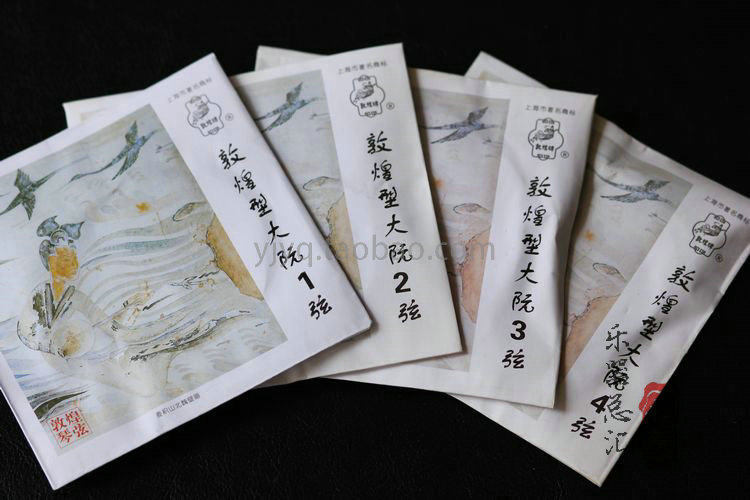 上海市著名商标
敦煌牌
®
敦煌型大阮1弦
麦积山北魏壁画
敦煌
琴弦
上海市著名商标
敦煌牌
®
敦煌型大阮2弦
上海市著名商标
敦煌牌
®
敦煌型大阮3弦
上海市著名商标
敦煌牌
®
敦煌型大
4弦
yjyq.taobao.com